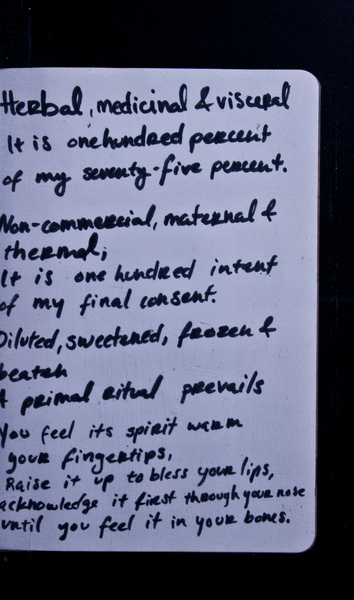 Herbal, medicinal & visceral
It is onehundred percent
of my seventy-five percent.
Non-commercial, maternal &
thermal;
It is one hundred intent
of my final consent.
Diluted, sweetened, frozen &
beaten
A primal ritual prevails
You feel its spirit warm
your fingertips,
Raise it up to bless your lips,
acknowledge it first through your nose
until you feel it in your bones.